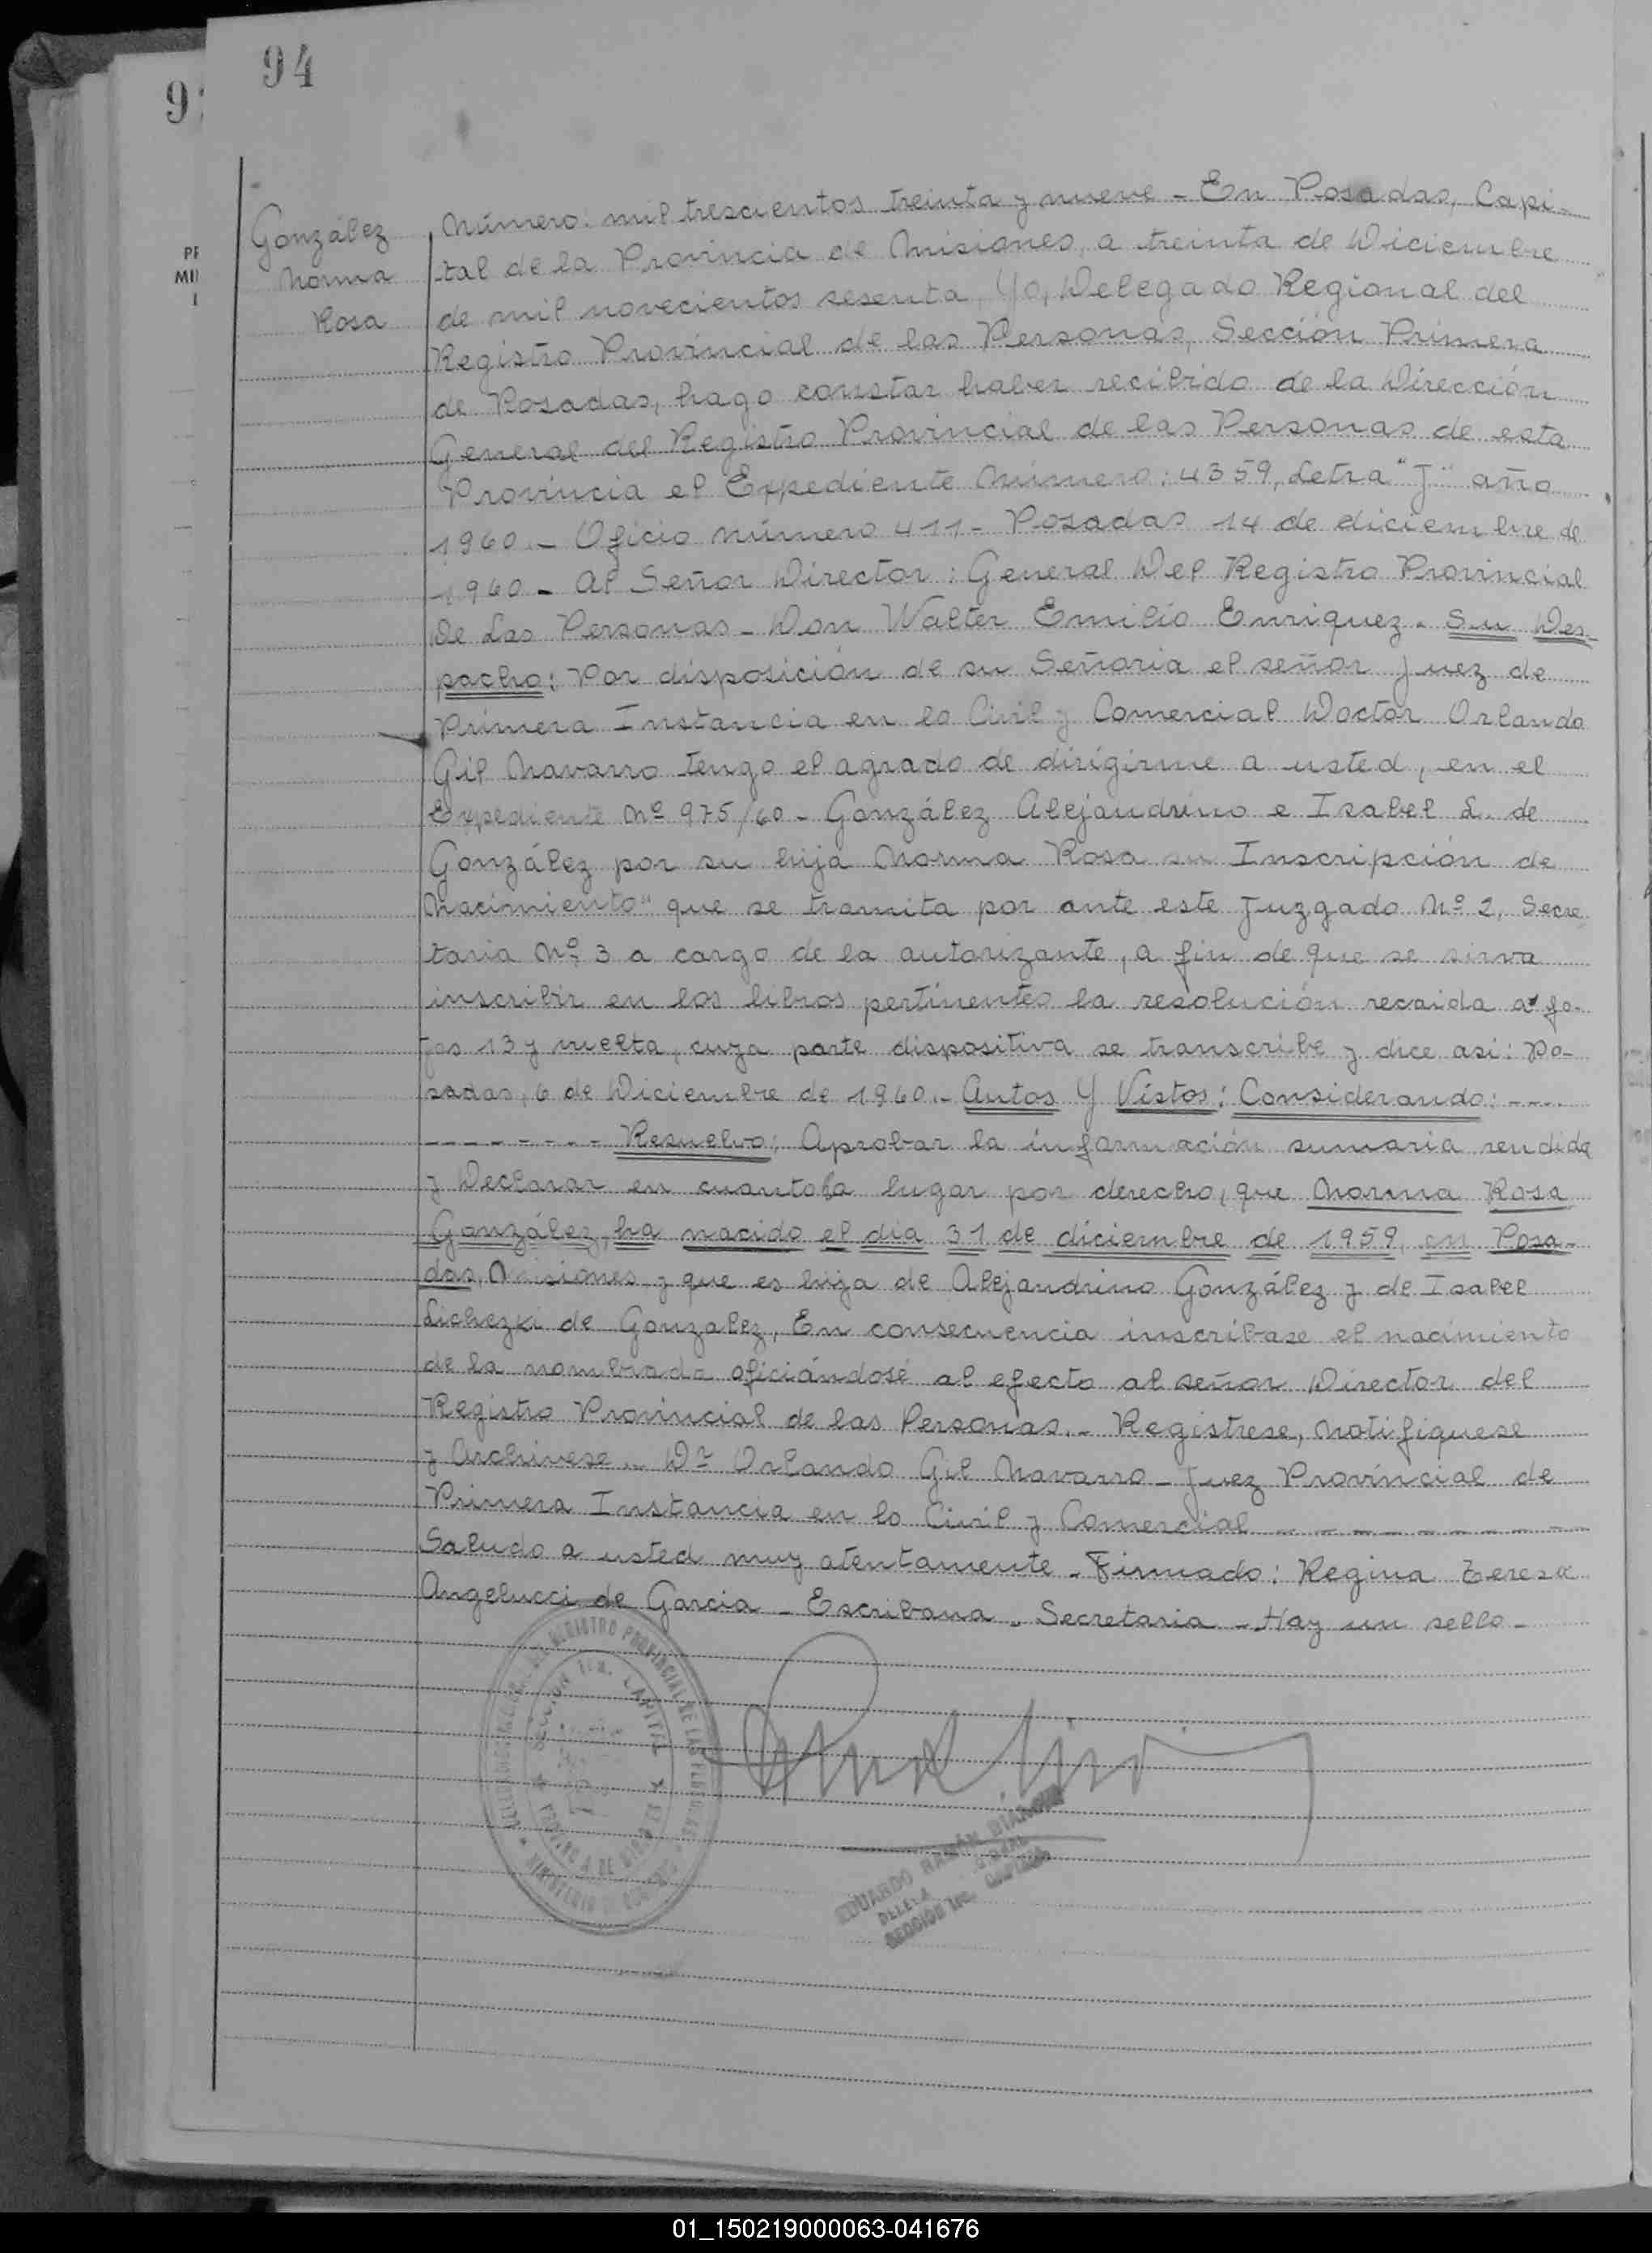 94
9
PR
MI
González
Norma
Rosa
Número: mil trescientos treinta y nueve - En Posadas, Capi-
tal de la Provincia de Misiones, a treinta de Diciembre
de mil novecientos sesenta, Yo, Delegado Regional del
Registro Provincial de las Personas, Sección Primera
de Posadas, hago constar haber recibido de la Dirección
General del Registro Provincial de las Personas de esta
Provincia el Expediente Número: 4359, Letra "J" año
1960.- Oficio número 411- Posadas 14 de diciembre de
1960 - Al Señor Director: General Del Registro Provincial
De Las Personas - Don Walter Emilio Enriquez. Su Des-
pacho: Por disposición de su Señoria el señor Juez de
Primera Instancia en lo Civil y Comercial Doctor Orlando
Gil Navarro tengo el agrado de dirigirme a usted, en el
Expediente Nº 975/60 - González Alejandrino e Isabel L. de
González por su hija Norma Rosa su Inscripción de
Nacimiento" que se tramita por ante este Juzgado Nº 2, Secre
taria Nº 3 a cargo de la autorizante, a fin de que se sirva
inscribir en los libros pertinentes la resolución recaida a fo-
jas 13 y vuelta, cuya parte dispositiva se transcribe y dice asi: Po-
sadas, 6 de Diciembre de 1960.- Autos Y Vistos: Considerando: ----
-------- Resuelvo: Aprobar la información sumaria rendida
y Declarar en cuanto ha lugar por derecho, que Norma Rosa
González, ha nacido el dia 31 de diciembre de 1959, en Posa-
das, Misiones y que es hija de Alejandrino González y de Isabel
Lichezki de Gonzalez, En consecuencia inscribase el nacimiento
de la nombrada oficiándose al efecto al señor Director del
Registro Provincial de las Personas.- Registrese, Notifiquese
y Archivese - Dr Orlando Gil Navarro - Juez Provincial de
Primera Instancia en lo Civil y Comercial - - - - - - - -
Saludo a usted muy atentamente - Firmado: Regina Teresa
Angelucci de Garcia - Escribana - Secretaria - Hay un sello -
REGISTRO PROVINCIAL DE LAS PERSONAS
SECCION 1ra. CAPITAL
PROVINCIA DE MISIONES
EDUARDO RAMÓN BIANCHI
SECCIÓN 1ra.
01_150219000063-041676